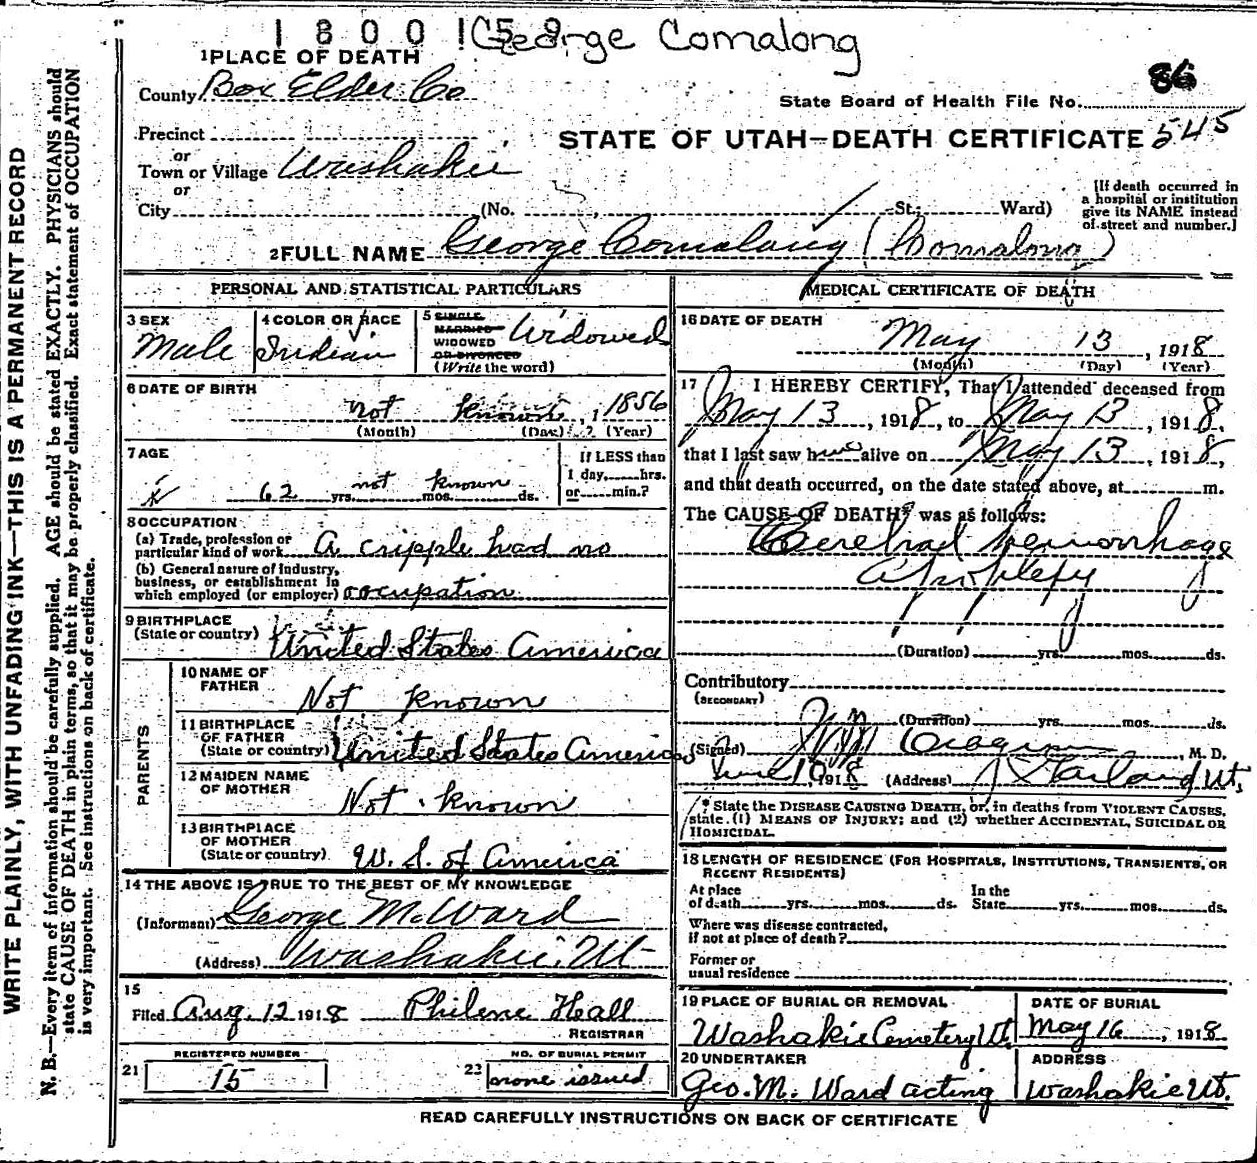 1800159 George Comalong
1 PLACE OF DEATH
County Box Elder Co
86
State Board of Health File No.
Precinct
STATE OF UTAH—DEATH CERTIFICATE 545
or
Town or Village Washakie
or
City (No. St.; Ward)
[If death occurred in
a hospital or institution
give its NAME instead
of street and number.]
2 FULL NAME George Comalong (Comalong)
PERSONAL AND STATISTICAL PARTICULARS
3 SEX
Male
4 COLOR OR RACE
Indian
5 SINGLE
MARRIED
WIDOWED
OR DIVORCED
(Write the word)
Widowed
6 DATE OF BIRTH
not known, 1856
(Month) (Day) (Year)
7 AGE
62 yrs. not mos. known ds.
If LESS than
1 day, hrs.
or min.?
8 OCCUPATION
(a) Trade, profession or
particular kind of work A cripple had no
(b) General nature of industry,
business, or establishment in
which employed (or employer) occupation
9 BIRTHPLACE
(State or country) United States America
PARENTS
10 NAME OF
FATHER
Not known
11 BIRTHPLACE
OF FATHER
(State or country) United States America
12 MAIDEN NAME
OF MOTHER
Not known
13 BIRTHPLACE
OF MOTHER
(State or country) U. S. of America
14 THE ABOVE IS TRUE TO THE BEST OF MY KNOWLEDGE
(Informant) George M. Ward
(Address) Washakie Ut
15
Filed Aug. 12 1918 Philene Hall
REGISTRAR
21 REGISTERED NUMBER
15
22 NO. OF BURIAL PERMIT
none issued
MEDICAL CERTIFICATE OF DEATH
16 DATE OF DEATH
May 13, 1918
(Month) (Day) (Year)
17 I HEREBY CERTIFY, That I attended deceased from
May 13, 1918, to May 13, 1918,
that I last saw h alive on May 13, 1918,
and that death occurred, on the date stated above, at m.
The CAUSE OF DEATH* was as follows:
Cerebral hemorrhage
Apoplexy
(Duration) yrs. mos. ds.
Contributory
(SECONDARY)
(Duration) yrs. mos. ds.
(Signed) M. D.
1918 (Address) Garland Ut.
* State the DISEASE CAUSING DEATH, or, in deaths from VIOLENT CAUSES,
state (1) MEANS OF INJURY; and (2) whether ACCIDENTAL, SUICIDAL OR
HOMICIDAL.
18 LENGTH OF RESIDENCE (FOR HOSPITALS, INSTITUTIONS, TRANSIENTS, OR
RECENT RESIDENTS)
At place In the
of death yrs. mos. ds. State yrs. mos. ds.
Where was disease contracted,
if not at place of death?
Former or
usual residence
19 PLACE OF BURIAL OR REMOVAL
Washakie Cemetery Ut.
DATE OF BURIAL
May 16, 1918
20 UNDERTAKER
Geo. M. Ward acting
ADDRESS
Washakie Ut.
READ CAREFULLY INSTRUCTIONS ON BACK OF CERTIFICATE
WRITE PLAINLY, WITH UNFADING INK—THIS IS A PERMANENT RECORD
N. B.—Every item of information should be carefully supplied. AGE should be stated EXACTLY. PHYSICIANS should
state CAUSE OF DEATH in plain terms, so that it may be properly classified. Exact statement of OCCUPATION
is very important. See instructions on back of certificate.